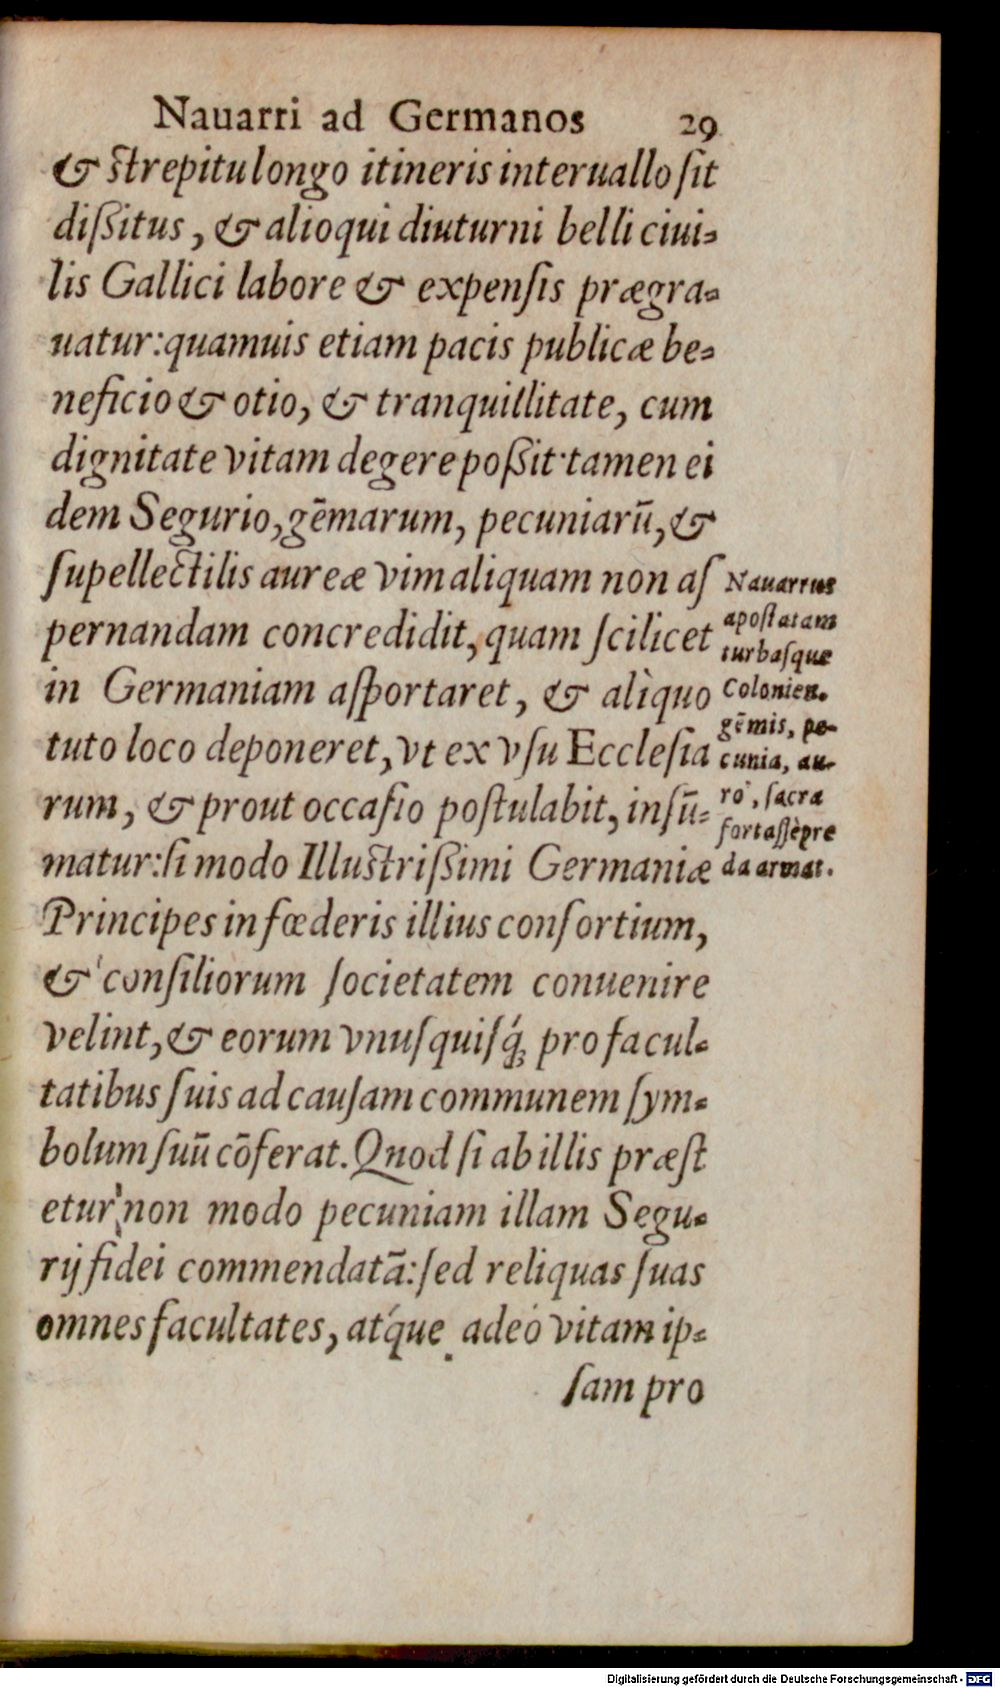 Nauarri ad Germanos 29
& strepitu longo itineris interuallo ſit
diſsitus, & alioqui diuturni belli ciui-
lis Gallici labore & expenſis prægra-
uatur: quamuis etiam pacis publicæ be-
neficio & otio, & tranquillitate, cum
dignitate vitam degere poſsit· tamen ei
dem Segurio, gēmarum, pecuniarū, &
ſupellectilis aureæ vim aliquam non aſ
pernandam concredidit, quam ſcilicet
in Germaniam aſportaret, & alìquo
tuto loco deponeret, vt ex vſu Eccleſia
rum, & prout occaſio poſtulabit, inſū-
matur: ſi modo Illuſtriſsimi Germaniæ
Principes in fœderis illius conſortium,
& conſiliorum ſocietatem conuenire
velint, & eorum vnuſquiſq́; pro facul-
tatibus ſuis ad cauſam communem ſym-
bolum ſuū cōferat. Quod ſi ab illis præſt
etur, non modo pecuniam illam Segu-
rij fidei commendatā: ſed reliquas ſuas
omnes facultates, atq́ue adeò vitam ip-
ſam pro
Nauarrus
apoſtatam
turbaſque
Colonien.
gēmis, pe-
cunia, au-
ro, ſacra
fortaſſè pre
da armat.
Digitalisierung gefördert durch die Deutsche Forschungsgemeinschaft - DFG